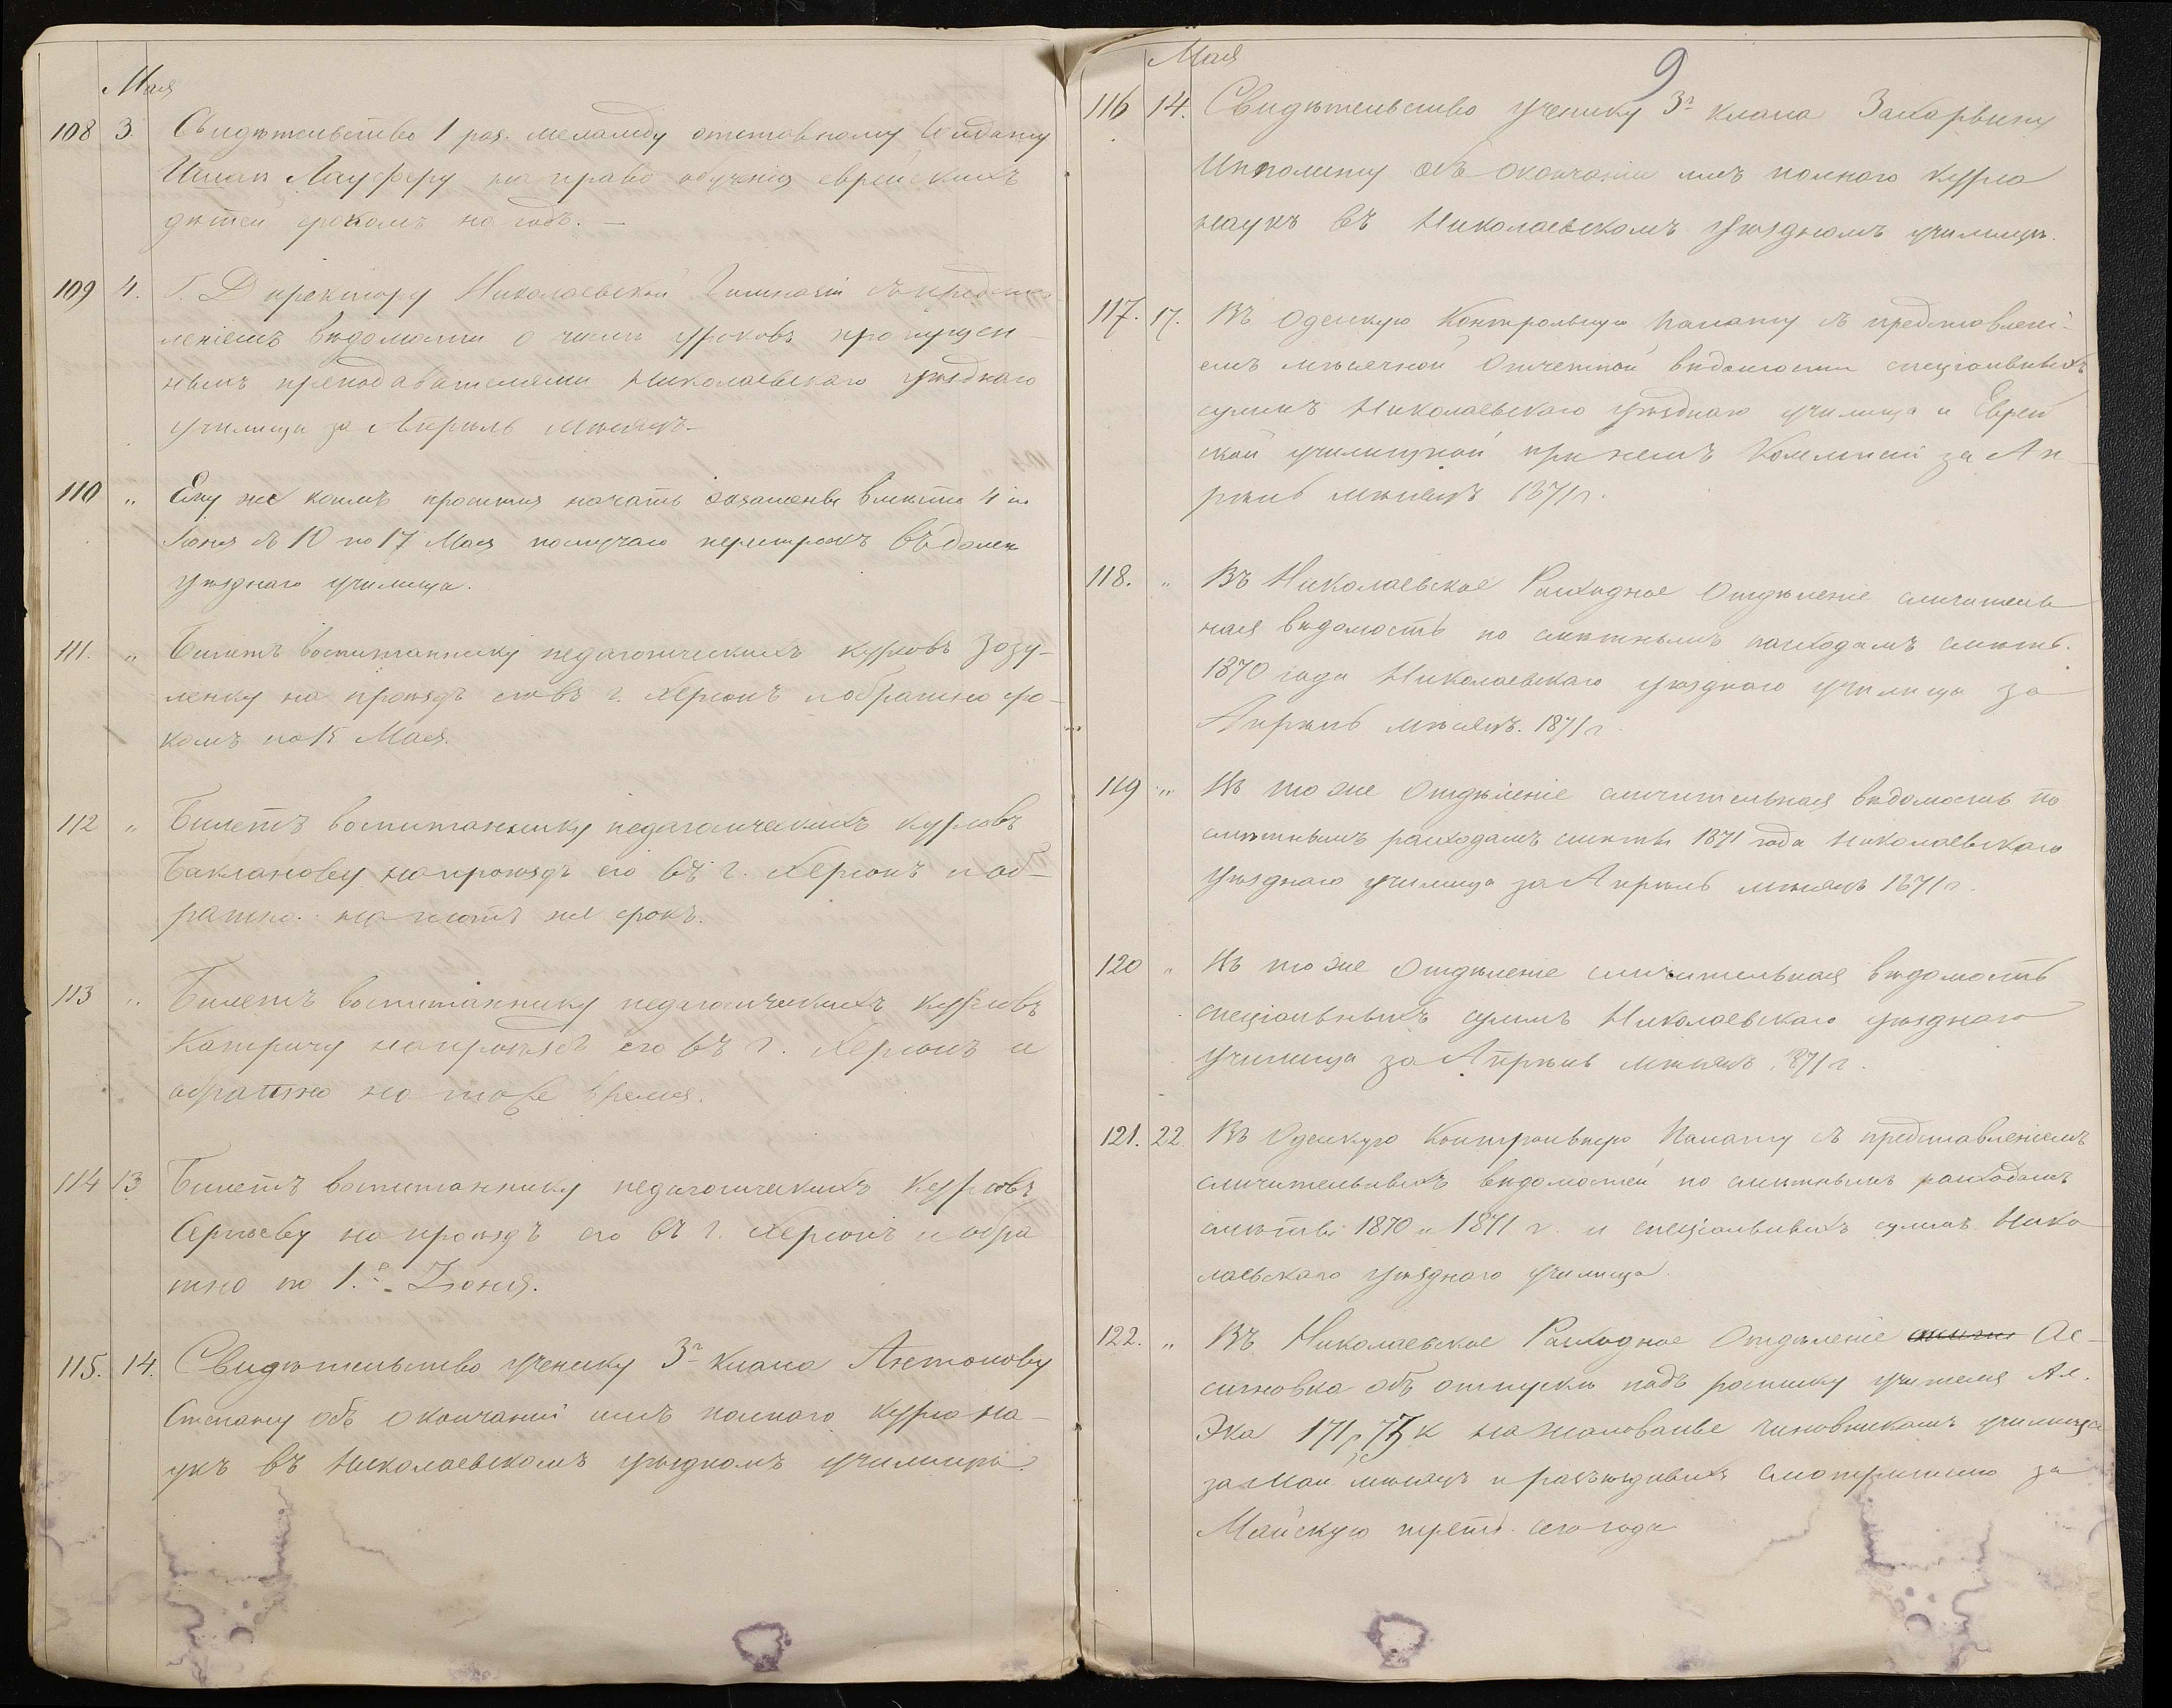 Мая
108 3. Свидѣтельство 1 раз. меламеду отставному Солдату
Лауферу на право обученія еврейскихъ
дѣтей срокомъ на годъ. —
109 4. Г. Директору Николаевской Гимназіи съ представ-
леніемъ вѣдомости о числѣ уроковъ пропущен-
ныхъ преподавателями Николаевскаго уѣзднаго
училища за Апрѣль мѣсяцъ.
110 „ Ему же коимъ просится начать экзамены вмѣсто 4 го
Іюня съ 10 по 17 Мая по случаю перестроекъ въ домѣ
уѣзднаго училища.
111. „ Билетъ воспитаннику педагогическихъ курсовъ Зозу-
ленку на проѣздъ его въ г. Херсонъ и обратно сро-
комъ по 15 Мая.
112 „ Билетъ воспитаннику педагогическихъ курсовъ
Бакланову на проѣздъ его въ г. Херсонъ и об-
ратно на тотъ же срокъ.
113 „ Билетъ воспитаннику педагогическихъ курсовъ
Катричу на проѣздъ его въ г. Херсонъ и
обратно на тоже время.
114 13 Билетъ воспитаннику педагогическихъ курсовъ
Сергѣеву на проѣздъ его въ г. Херсонъ и обра
тно по 1.е Іюня.
115. 14. Свидѣтельство ученику 3го класса Антонову
Степану объ окончаніи имъ полнаго курса на-
укъ въ Николаевскомъ уѣздномъ училищѣ.
9
Мая
116 14. Свидѣтельство ученику 3го класса Захарьину
Ипполиту объ окончаніи имъ полнаго курса
наукъ въ Николаевскомъ уѣздномъ училищѣ.
117. 17. Въ Одесскую Контрольную Палату съ представлені-
емъ мѣсячной Отчетной вѣдомости спеціальныхъ
суммъ Николаевскаго уѣзднаго училища и Еврей
ской училищной при немъ Коммисіи за Ап
рѣль мѣсяцъ 1871 г.
118. „ Въ Николаевское Расходное Отдѣленіе сличитель
ная вѣдомость по смѣтнымъ расходамъ смѣты
1870 года Николаевскаго уѣзднаго училища за
Апрѣль мѣсяцъ. 1871 г.
119 „ Въ то же Отдѣленіе сличительная вѣдомость по
смѣтнымъ расходамъ смѣты 1871 года Николаевскаго
уѣзднаго училища за Апрѣль мѣсяцъ 1871 г.
120 „ Въ то же Отдѣленіе сличительная вѣдомость
спеціальныхъ суммъ Николаевскаго уѣзднаго
училища за Апрѣль мѣсяцъ 1871 г.
121. 22. Въ Одесскую Контрольную Палату съ представленіемъ
сличительныхъ вѣдомостей по смѣтнымъ расходамъ
смѣты 1870 и 1871 г. и спеціальныхъ суммъ Нико
лаевскаго уѣзднаго училища.
122. „ Въ Николаевское Расходное Отдѣленіе Ас-
сигновка объ отпускѣ подъ росписку учителя
171 р к на жалованье чиновникамъ училища
за Май мѣсяцъ и разъѣздныхъ Смотрителю за
Майскую треть сего года